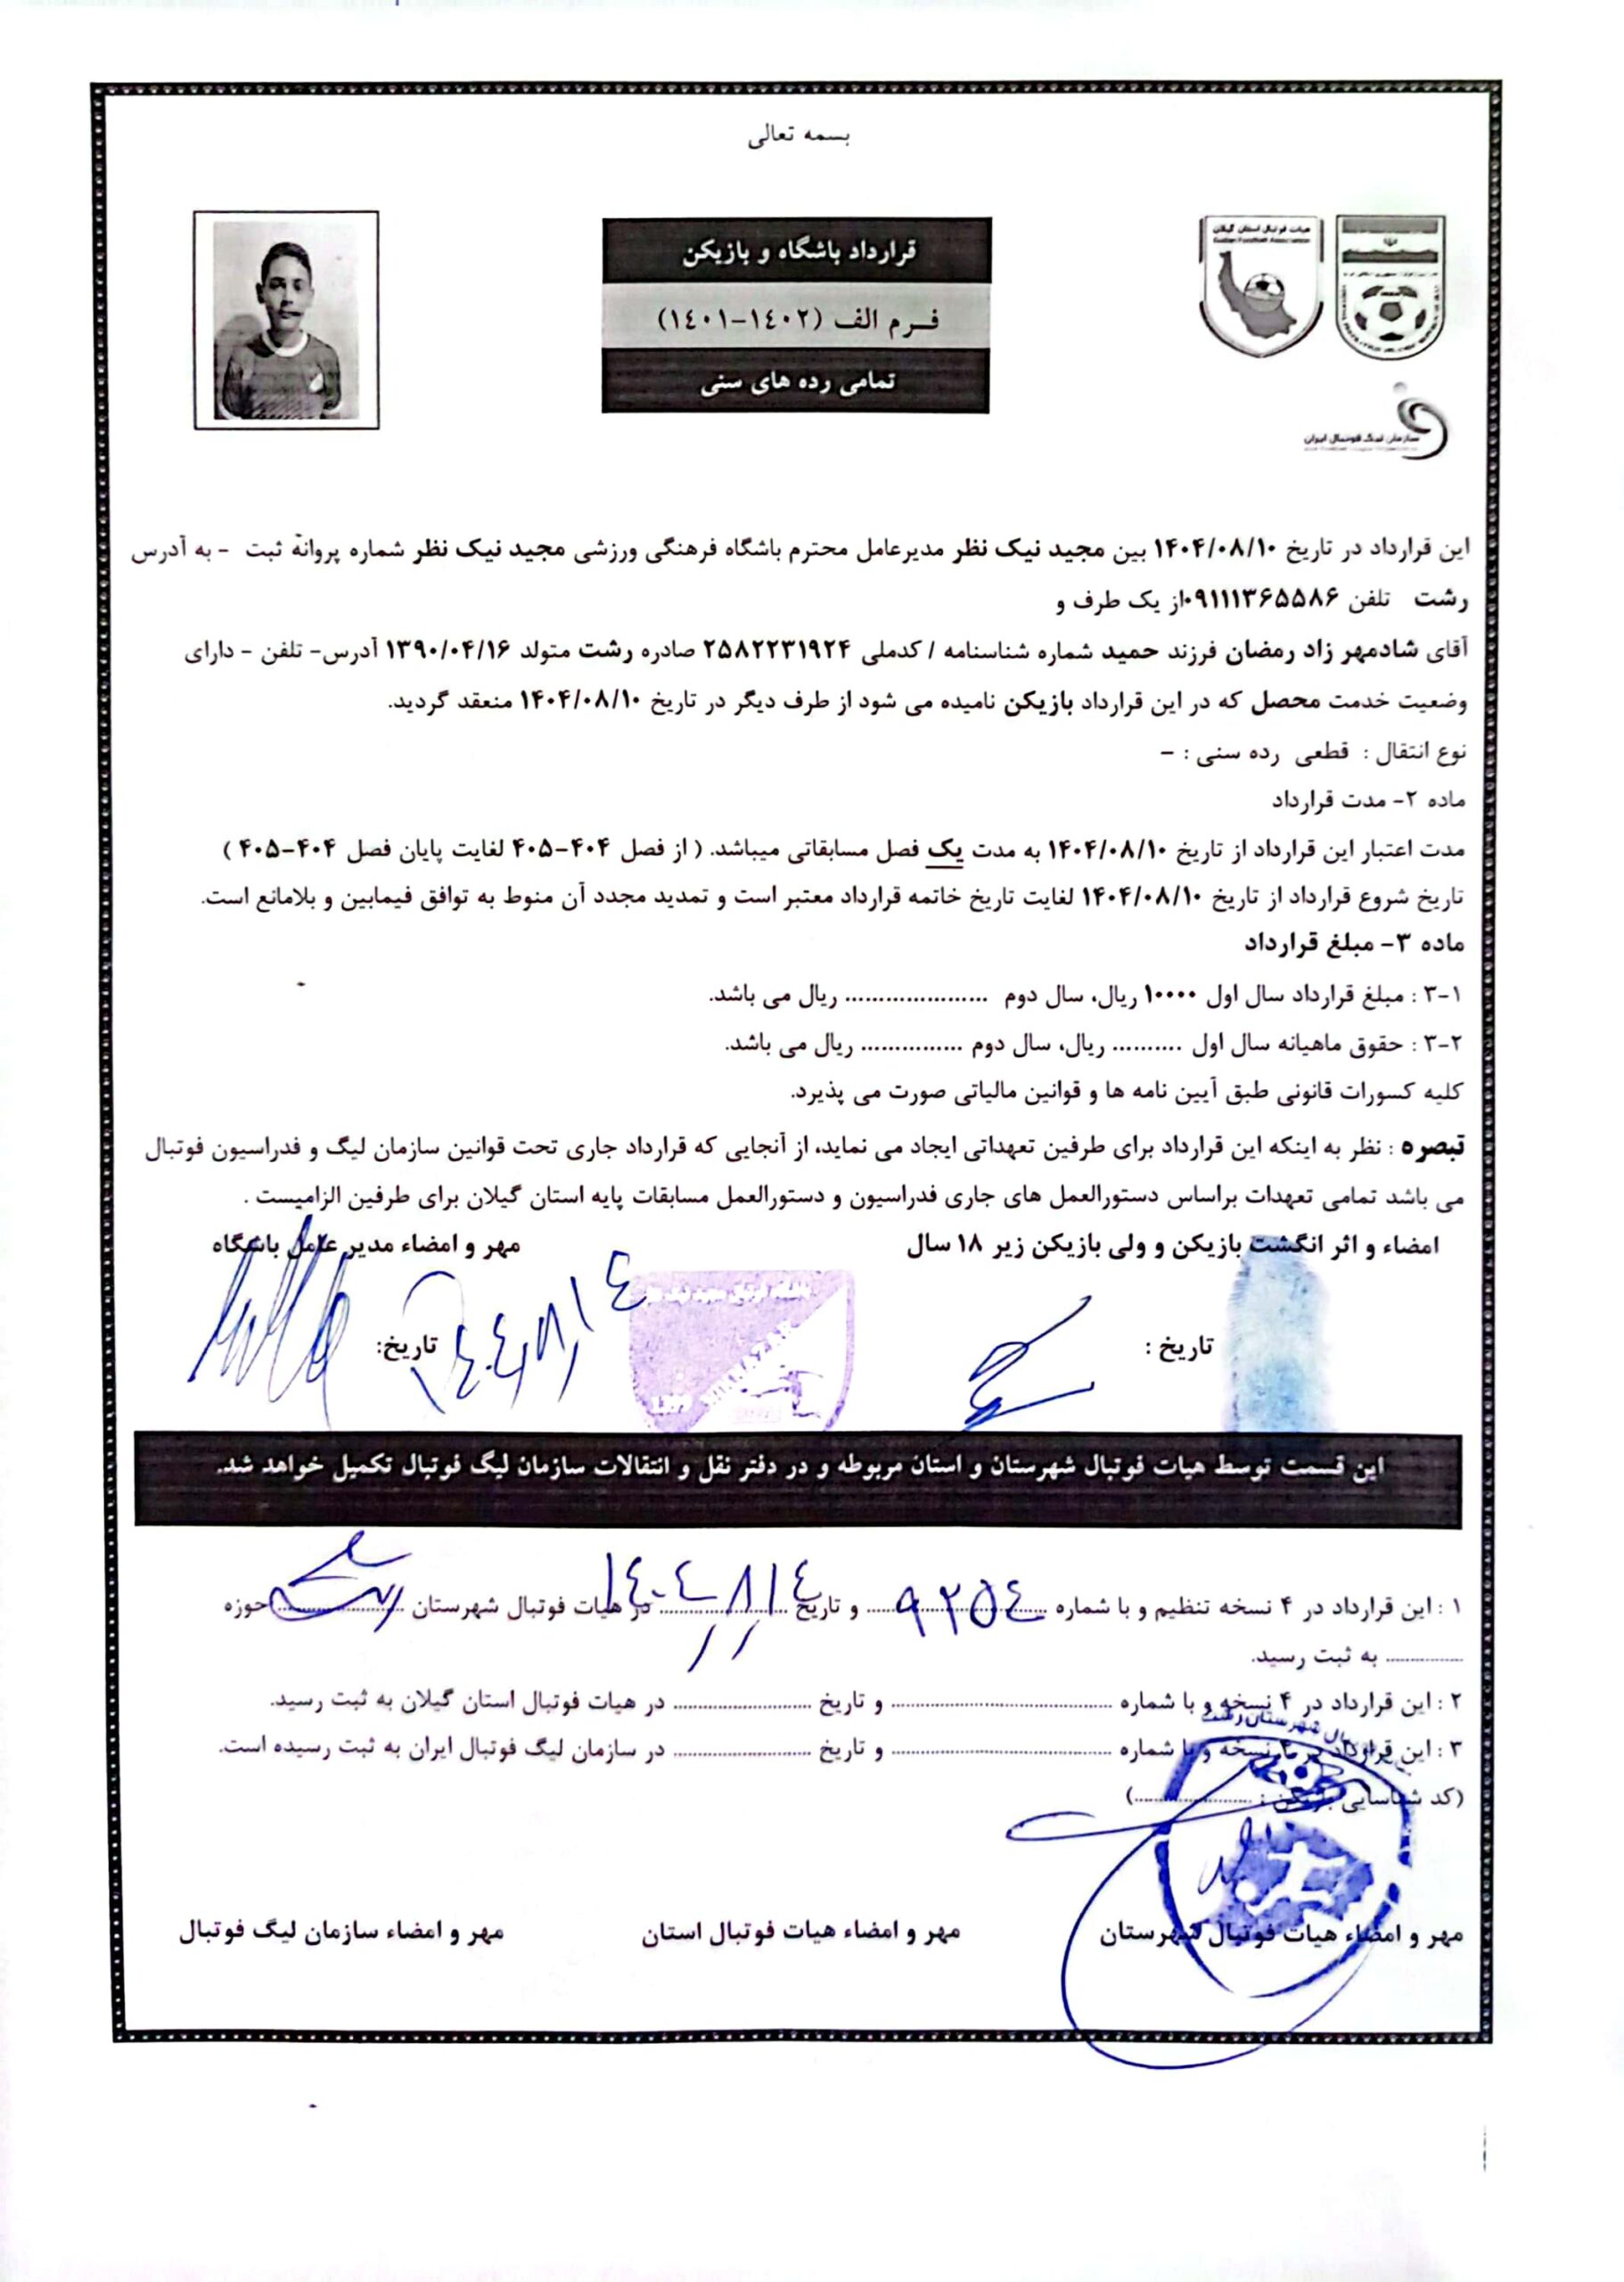 بسمه تعالی
هیات فوتبال استان گیلان
Guilan Football Association
قرارداد باشگاه و بازیکن
فـرم الف (١٤٠٢-١٤٠١)
تمامی رده های سنی
سازمان لیگ فوتبال ایران
این قرارداد در تاریخ ۱۴۰۴/۰۸/۱۰ بین مجید نیک نظر مدیرعامل محترم باشگاه فرهنگی ورزشی مجید نیک نظر شماره پروانهٔ ثبت - به آدرس
رشت تلفن ۰۹۱۱۱۳۶۵۵۸۶از یک طرف و
آقای شادمهر زاد رمضان فرزند حمید شماره شناسنامه / کدملی ۲۵۸۲۲۳۱۹۲۴ صادره رشت متولد ۱۳۹۰/۰۴/۱۶ آدرس- تلفن - دارای
وضعیت خدمت محصل که در این قرارداد بازیکن نامیده می شود از طرف دیگر در تاریخ ۱۴۰۴/۰۸/۱۰ منعقد گردید.
نوع انتقال : قطعی رده سنی : –
ماده ۲- مدت قرارداد
مدت اعتبار این قرارداد از تاریخ ۱۴۰۴/۰۸/۱۰ به مدت یک فصل مسابقاتی میباشد. ( از فصل ۴۰۴-۴۰۵ لغایت پایان فصل ۴۰۴-۴۰۵ )
تاریخ شروع قرارداد از تاریخ ۱۴۰۴/۰۸/۱۰ لغایت تاریخ خاتمه قرارداد معتبر است و تمدید مجدد آن منوط به توافق فیمابین و بلامانع است.
ماده ۳- مبلغ قرارداد
۳-۱ : مبلغ قرارداد سال اول ۱۰۰۰۰ ریال، سال دوم ..................... ریال می باشد.
۳-۲ : حقوق ماهیانه سال اول .......... ریال، سال دوم ............... ریال می باشد.
کلیه کسورات قانونی طبق آیین نامه ها و قوانین مالیاتی صورت می پذیرد.
تبصره : نظر به اینکه این قرارداد برای طرفین تعهداتی ایجاد می نماید، از آنجایی که قرارداد جاری تحت قوانین سازمان لیگ و فدراسیون فوتبال
می باشد تمامی تعهدات براساس دستورالعمل های جاری فدراسیون و دستورالعمل مسابقات پایه استان گیلان برای طرفین الزامیست .
امضاء و اثر انگشت بازیکن و ولی بازیکن زیر ۱۸ سال مهر و امضاء مدیر عامل باشگاه
تاریخ : تاریخ: ١٤٠٤/٨/١٤
باشگاه فوتبال مجید نیک نظر
این قسمت توسط هیات فوتبال شهرستان و استان مربوطه و در دفتر نقل و انتقالات سازمان لیگ فوتبال تکمیل خواهد شد.
۱ : این قرارداد در ۴ نسخه تنظیم و با شماره ٩٢٥٤ و تاریخ ١٤٠٤/٨/١٤ در هیات فوتبال شهرستان رشت حوزه
............... به ثبت رسید.
۲ : این قرارداد در ۴ نسخه و با شماره ............... و تاریخ ............... در هیات فوتبال استان گیلان به ثبت رسید.
۳ : این قرارداد در ۴ نسخه و با شماره ............... و تاریخ ............... در سازمان لیگ فوتبال ایران به ثبت رسیده است.
(کد شناسایی بازیکن : ...............)
مهر و امضاء هیات فوتبال شهرستان مهر و امضاء هیات فوتبال استان مهر و امضاء سازمان لیگ فوتبال